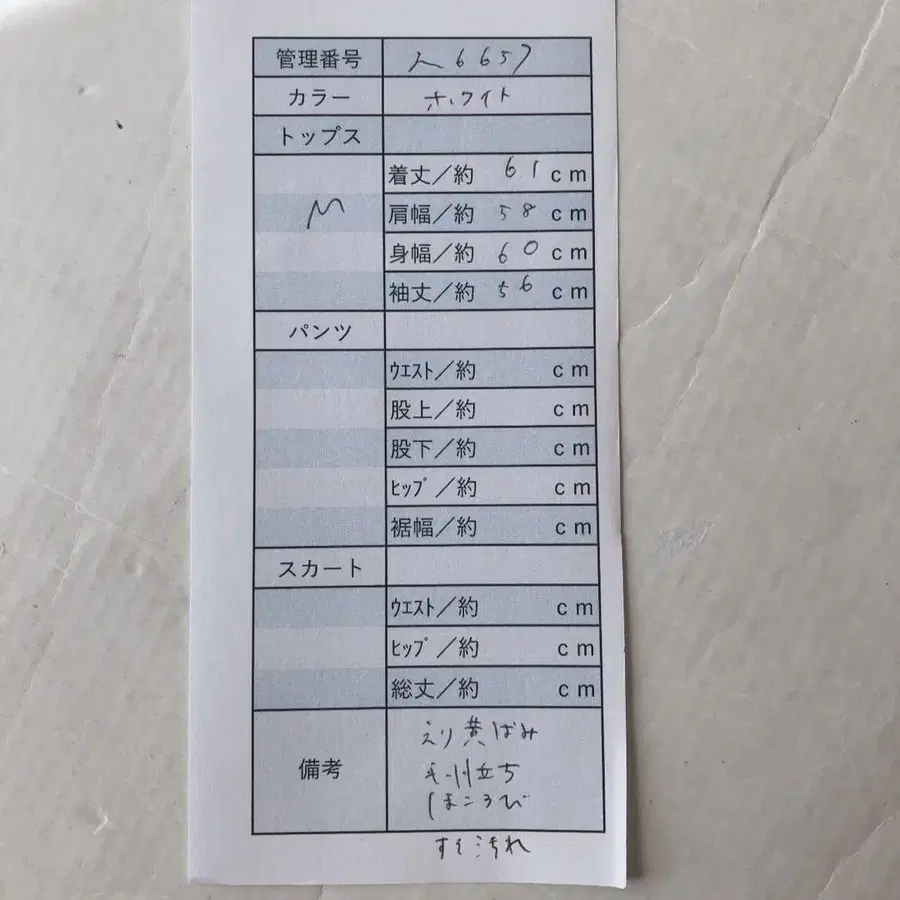 管理番号 人6657
カラー ホワイト
トップス
着丈／約 61 cm
M 肩幅／約 58 cm
身幅／約 60 cm
袖丈／約 56 cm
パンツ
ウエスト／約 cm
股上／約 cm
股下／約 cm
ヒップ／約 cm
裾幅／約 cm
スカート
ウエスト／約 cm
ヒップ／約 cm
総丈／約 cm
えり黄ばみ
備考 毛羽立ち
ほころび
すそ汚れ